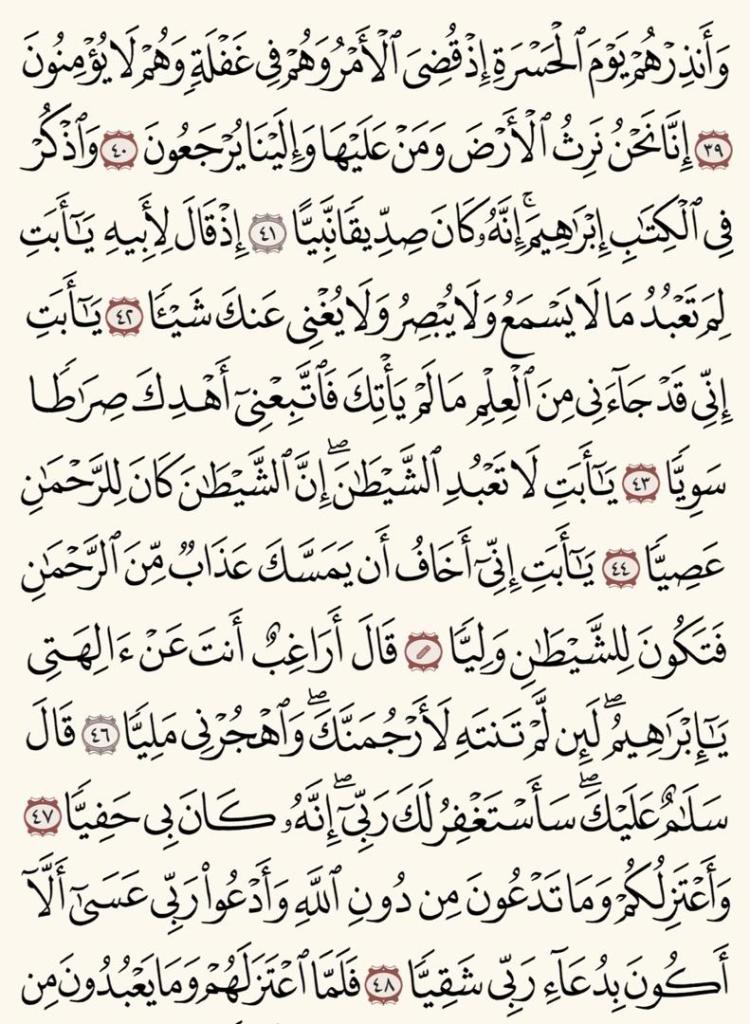 وَأَنذِرْهُمْ يَوْمَ ٱلْحَسْرَةِ إِذْ قُضِىَ ٱلْأَمْرُ وَهُمْ فِى غَفْلَةٍ وَهُمْ لَا يُؤْمِنُونَ
٣٩ إِنَّا نَحْنُ نَرِثُ ٱلْأَرْضَ وَمَنْ عَلَيْهَا وَإِلَيْنَا يُرْجَعُونَ ٤٠ وَٱذْكُرْ
فِى ٱلْكِتَٰبِ إِبْرَٰهِيمَ ۚ إِنَّهُۥ كَانَ صِدِّيقًا نَّبِيًّا ٤١ إِذْ قَالَ لِأَبِيهِ يَٰٓأَبَتِ
لِمَ تَعْبُدُ مَا لَا يَسْمَعُ وَلَا يُبْصِرُ وَلَا يُغْنِى عَنكَ شَيْـًٔا ٤٢ يَٰٓأَبَتِ
إِنِّى قَدْ جَآءَنِى مِنَ ٱلْعِلْمِ مَا لَمْ يَأْتِكَ فَٱتَّبِعْنِىٓ أَهْدِكَ صِرَٰطًا
سَوِيًّا ٤٣ يَٰٓأَبَتِ لَا تَعْبُدِ ٱلشَّيْطَٰنَ ۖ إِنَّ ٱلشَّيْطَٰنَ كَانَ لِلرَّحْمَٰنِ
عَصِيًّا ٤٤ يَٰٓأَبَتِ إِنِّىٓ أَخَافُ أَن يَمَسَّكَ عَذَابٌ مِّنَ ٱلرَّحْمَٰنِ
فَتَكُونَ لِلشَّيْطَٰنِ وَلِيًّا قَالَ أَرَاغِبٌ أَنتَ عَنْ ءَالِهَتِى
يَٰٓإِبْرَٰهِيمُ ۖ لَئِن لَّمْ تَنتَهِ لَأَرْجُمَنَّكَ ۖ وَٱهْجُرْنِى مَلِيًّا ٤٦ قَالَ
سَلَٰمٌ عَلَيْكَ ۖ سَأَسْتَغْفِرُ لَكَ رَبِّىٓ ۖ إِنَّهُۥ كَانَ بِى حَفِيًّا ٤٧
وَأَعْتَزِلُكُمْ وَمَا تَدْعُونَ مِن دُونِ ٱللَّهِ وَأَدْعُوا۟ رَبِّى عَسَىٰٓ أَلَّآ
أَكُونَ بِدُعَآءِ رَبِّى شَقِيًّا ٤٨ فَلَمَّا ٱعْتَزَلَهُمْ وَمَا يَعْبُدُونَ مِن